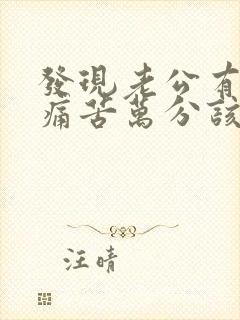 發現老公有
痛苦萬分該
汪晴